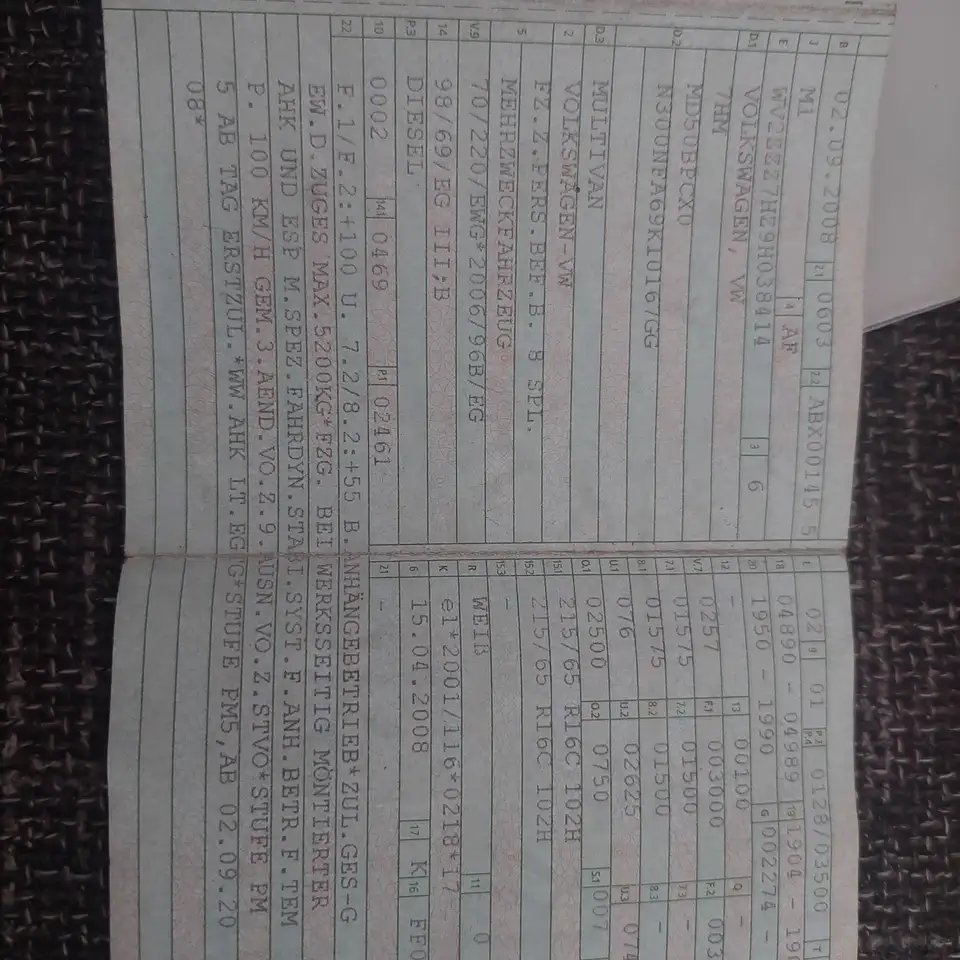 B 02.09.2008 2.1 0603 2.2 ABX00145 5
J M1 4 AF
E WV2ZZZ7HZ9H038414 3 6
D.1 VOLKSWAGEN, VW
D.2 7HM
MD50BPCX0
N300NFA69K10167GG
D.3 MULTIVAN
2 VOLKSWAGEN-VW
5 FZ.Z.PERS.BEF.B. 8 SPL.
MEHRZWECKFAHRZEUG
V.9 70/220/EWG*2006/96B/EG
14 98/69/EG III;B
P.3 DIESEL
10 0002 14.1 0469 P.1 02461
L 02 9 01 P.2 P.4 0128/03500 T
18 04890 - 04989 19 1904 - 19
20 1950 - 1990 G 002274 -
12 - 13 00100 Q -
V.7 0257 F.1 003000 F.2 003
7.1 01575 7.2 01500 7.3 -
8.1 01575 8.2 01500 8.3 -
U.1 076 U.2 02625 U.3 074
O.1 02500 O.2 0750 S.1 007
15.1 215/65 R16C 102H
15.2 215/65 R16C 102H
15.3 -
R WEIß 11 0
K e1*2001/116*0218*17
6 15.04.2008 17 K 16 FF0
21 -
22 F.1/F.2:+100 U. 7.2/8.2:+55 B.ANHÄNGEBETRIEB*ZUL.GES-G
EW.D.ZUGES MAX.5200KG*FZG. BEI WERKSSEITIG MONTIERTER
AHK UND ESP M.SPEZ.FAHRDYN.STABI.SYST.F.ANH.BETR.F.TEM
P. 100 KM/H GEM.3.AEND.VO.Z.9.AUSN.VO.Z.STVO*STUFE PM
5 AB TAG ERSTZUL.*WW.AHK LT.EG*STUFE PM5,AB 02.09.20
08*